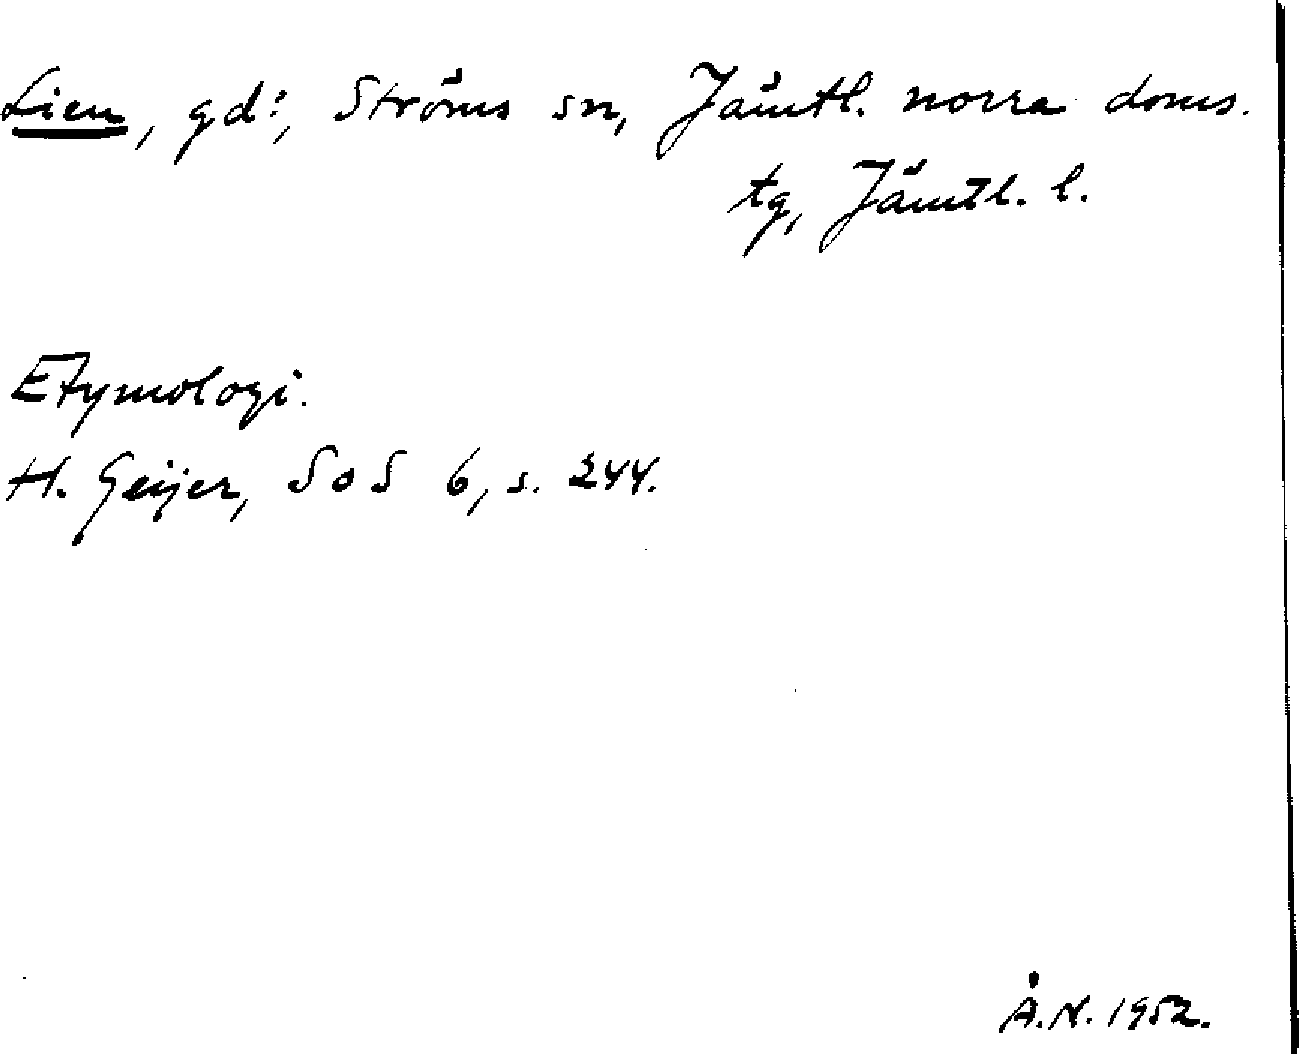 Lien, gd:, Ströms sn, Jämtl. norra doms.
tg, Jämtl. l.
Etymologi.
H. Geijer, SoS 6, s. 244.
Å.N. 1952.